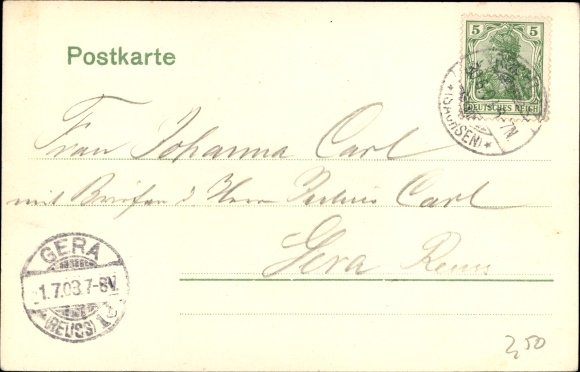 Postkarte
5
DEUTSCHES REICH
(SACHSEN)
Frau Johanna Carl
mit Briefen d Herrn Carl
Gera Reuss
GERA
1.7.03.7-8V.
(REUSS) 1
2,50